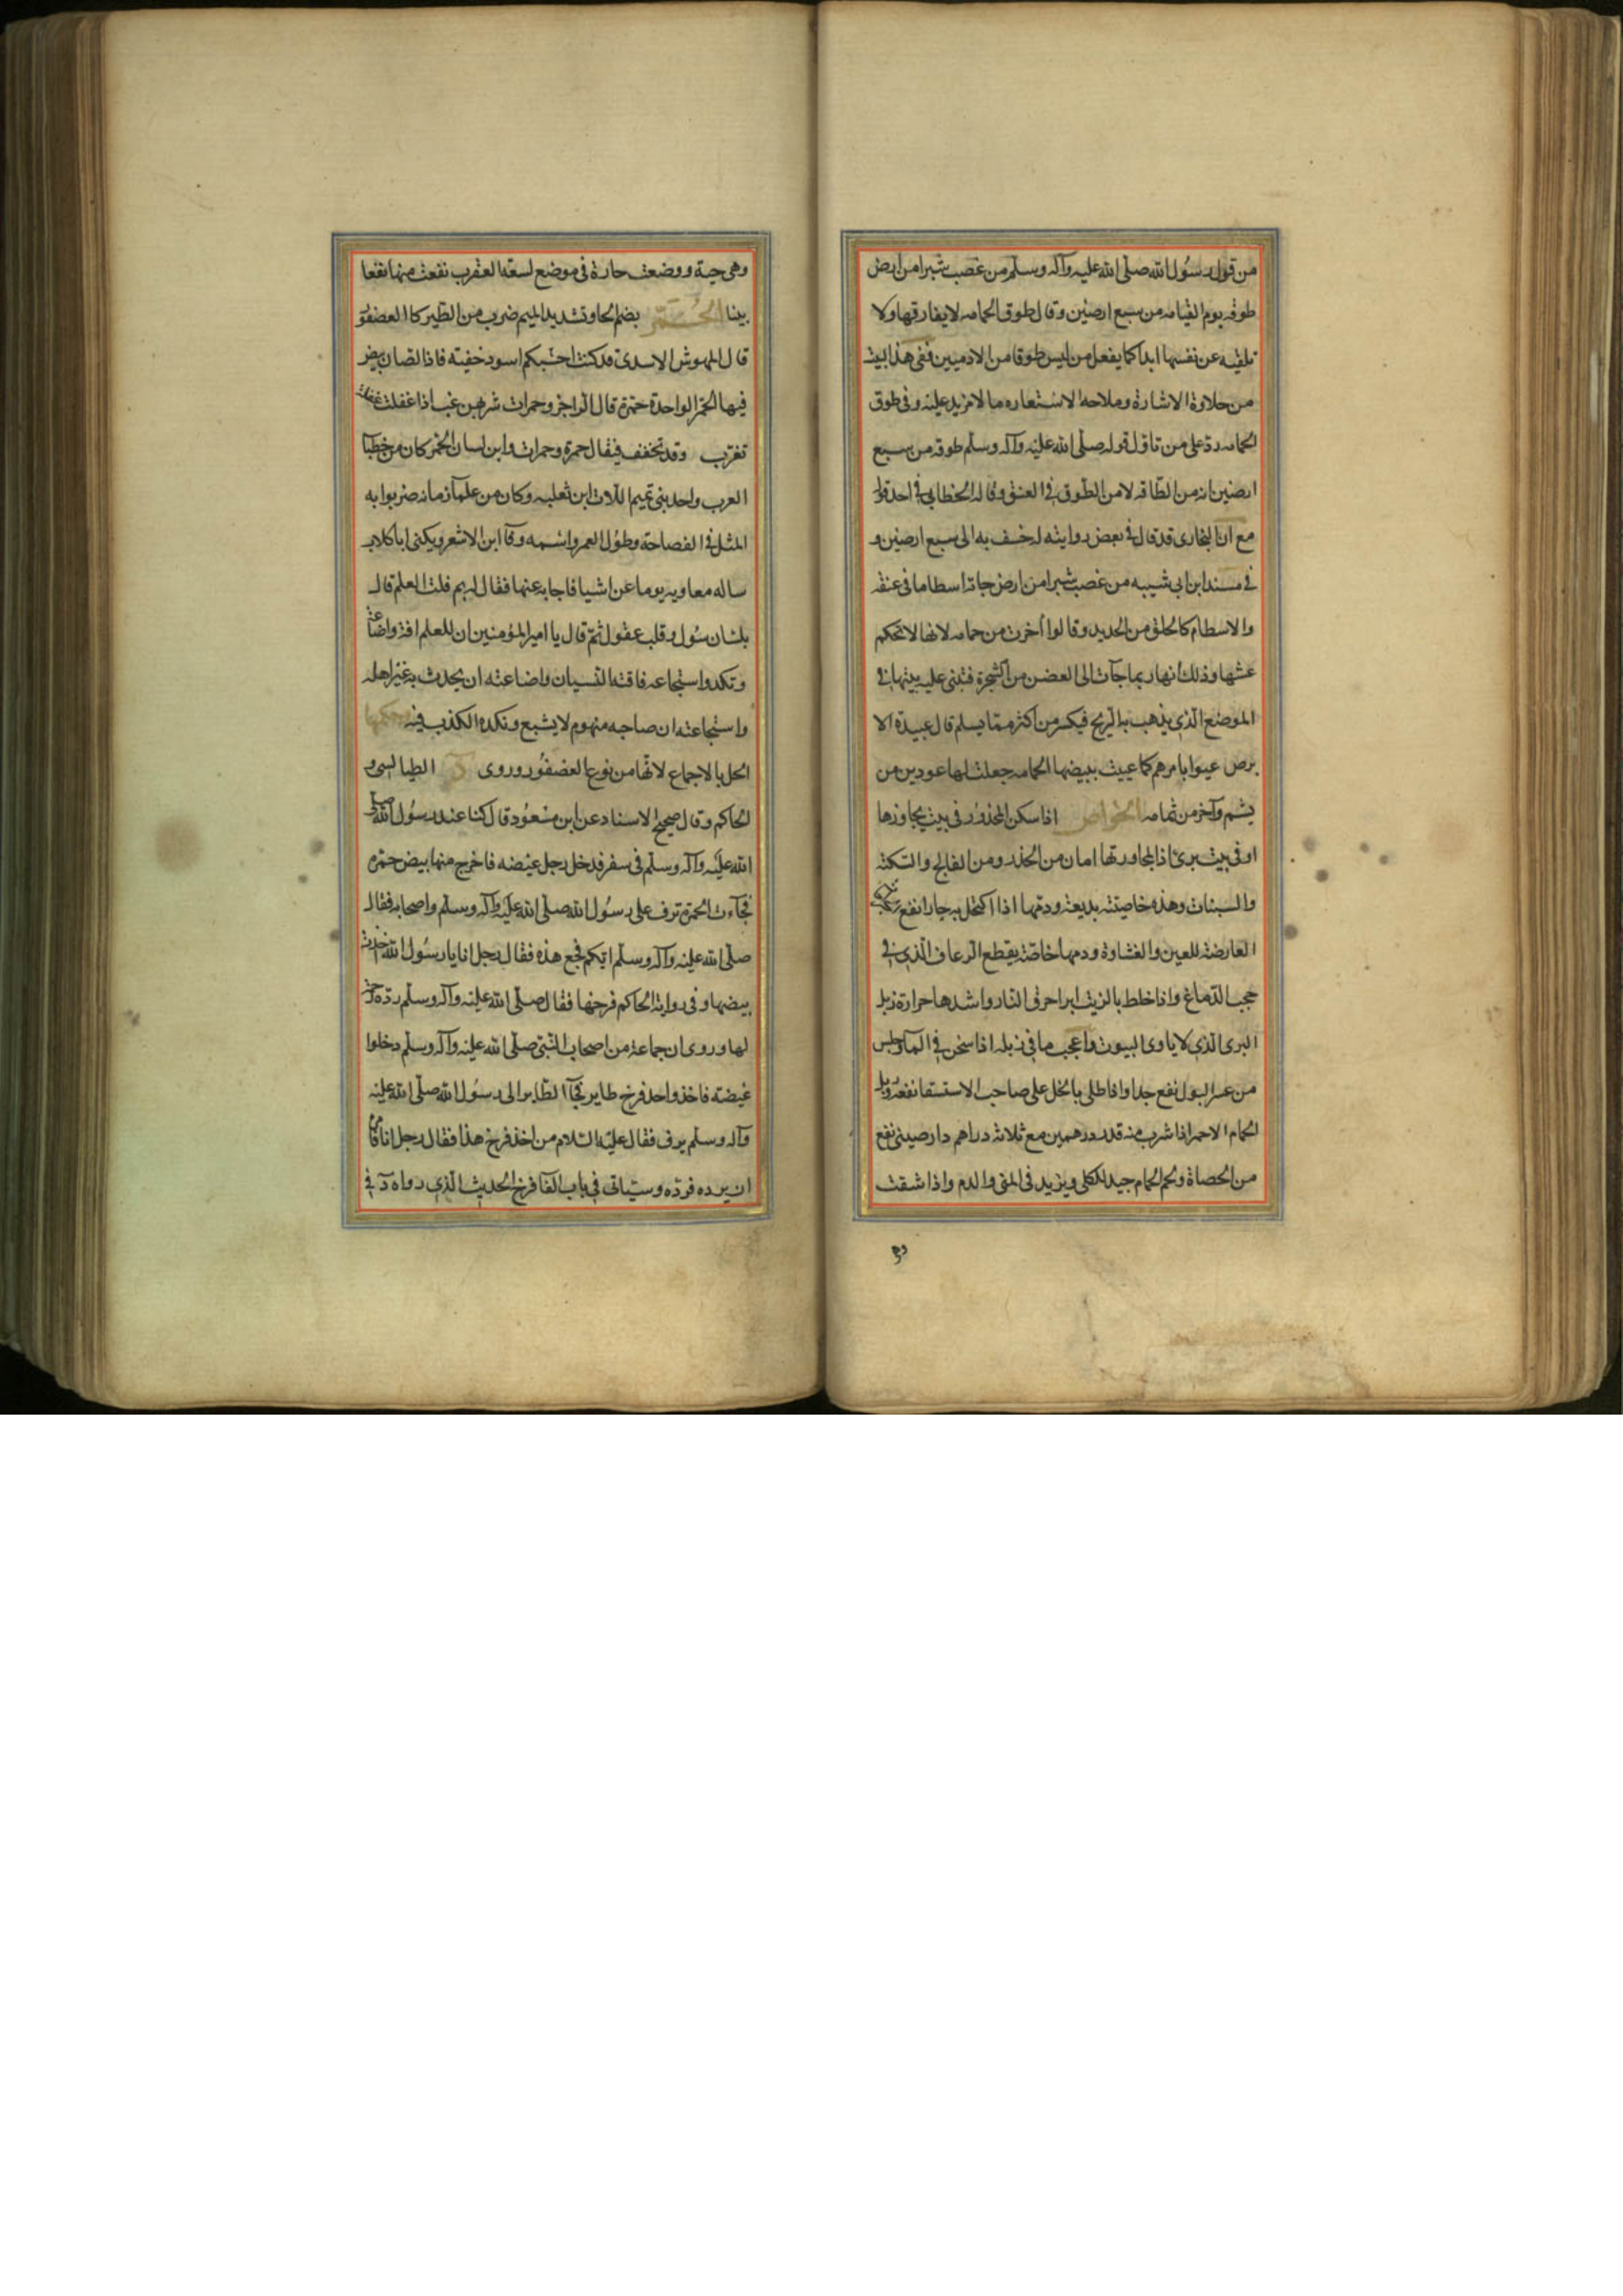 من قول رسول الله صلى الله عليه وآله وسلم من غصب شبرا من ارض
طوقه يوم القيامه من سبع ارضين وقال طوق الحمامه لا يفارقها ولا
تلقيه عن نفسها ابدا كما يفعل من لبس طوقا من الادميين ففى هذا البيت
من حلاوة الاشارة وملاحه الاستعاره ما لا مزيد عليه وفى طوق
الحمامه رد على من تاول قوله صلى الله عليه وآله وسلم طوقه من سبع
ارضين انه من الطاقه لا من الطوق فى العنق وقاله الخطابى فى احد قوليه
مع ان البخارى قد قال فى بعض رواياته لخسف به الى سبع ارضين و
فى مسند ابن ابى شيبه من غصب شبرا من ارض جا به اسطاما فى عنقه
والاسطام كالحلق من الحديد وقالوا اخرق من حمامه لانها لا تحكم
عشها وذلك انها ربما جآت الى الغصن من الشجرة فتبنى عليه بيتها فى
الموضع الذى يذهب به الريح فيكسر من اكثر مما يسلم قال عبيدة الا
برص عيوا بامرهم كما عييت ببيضها الحمامه جعلت لها عودين من
بشم وآخر من ثمامه الخواص اذا سكن المخدور فى بيت يجاورها
او فى بيت برئ اذا لمجاورتها امان من الخدر ومن الفالج والسكته
والسبات وهذه خاصيته بديعه ودمها اذا اكتحل به حارا نفع
العارضة للعين والغشاوة ودمها خاصة يقطع الرعاف الذى فى
حجب الدماغ واذا خلط بالزيت ابرا حرق النار واشدها حرارة زبل
البرى الذى لا ياوى البيوت واعجب ما فى زبله اذا سخن فى المآ وجلس
من عسر البول نفع جدا واذا طلى بالخل على صاحب الاستسقا نفعه وزبل
الحمام الاحمر اذا شرب منه قدر درهمين مع ثلاثه دراهم دارصينى نفع
من الحصاة ولحم الحمام جيد للكلى ويزيد فى المنى والدم واذا شقت
وهى حية ووضعت حارة فى موضع لسعة العقرب نفعت منها نفعا
بينا الحمر بضم الحا وتشديد الميم ضرب من الطير كالعصفور
قال المهوش الاسدى قد كنت احسبكم اسود خفيته فاذا لصاف يبض
فيها الحمر الواحدة حمرة قال الراجز وحمرات شربهن غب اذا غفلت غفلت
تغرب وقد تخفف فيقال حمرة وحمرات وابن لسان الحمر كان من خطبآ
العرب واحد بنى تميم اللات ابن ثعلبه وكان من علمآ زمانه ضربوا به
المثل فى الفصاحة وطول العمر واسمه وقآ ابن الاشعر ويكنى ابا كلاب
ساله معاويه يوما عن اشيا فاجابه عنها فقال له بم نلت العلم قال
بلسان سؤل وقلب عقول ثم قال يا امير المؤمنين ان للعلم افة واضاعة
ونكدا واستجاعه فافته النسيان واضاعته ان يحدث به غير اهله
واستجاعته ان صاحبه منهوم لا يشبع ونكده الكذب فيه حكمها
الحل بالاجماع لانها من نوع العصفور وروى الطيالسى و
الحاكم وقال صحيح الاسناد عن ابن مسعود قال كنا عند رسول الله صلى
الله عليه وآله وسلم فى سفر فدخل رجل غيضه فاخرج منها بيض حمره
فجآءت الحمرة ترف على رسول الله صلى الله عليه وآله وسلم واصحابه فقال
صلى الله عليه وآله وسلم ايكم فجع هذه فقال رجل انا يا رسول الله اخذت
بيضها وفى رواية الحاكم فرخها فقال صلى الله عليه وآله وسلم رده رحمة
لها وروى ان جماعة من اصحاب النبى صلى الله عليه وآله وسلم دخلوا
غيضته فاخذ واحد فرخ طاير فجآ الطاير الى رسول الله صلى الله عليه
وآله وسلم يرف فقال عليه السلام من اخذ فرخ هذا فقال رجل انا فامره
ان يرده فرده وسياتى فى باب الفآ فرخ الحديث الذى رواه د فى
وهى